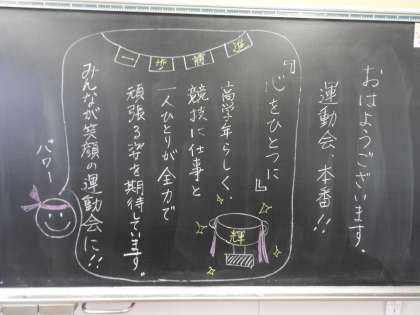 おはようございます。
運動会、本番!!
一歩前進
『心をひとつに』
高学年らしく、
競技に仕事と
一人ひとりが全力で
頑張る姿を期待しています。
みんなが笑顔の運動会に!!
輝
パワー